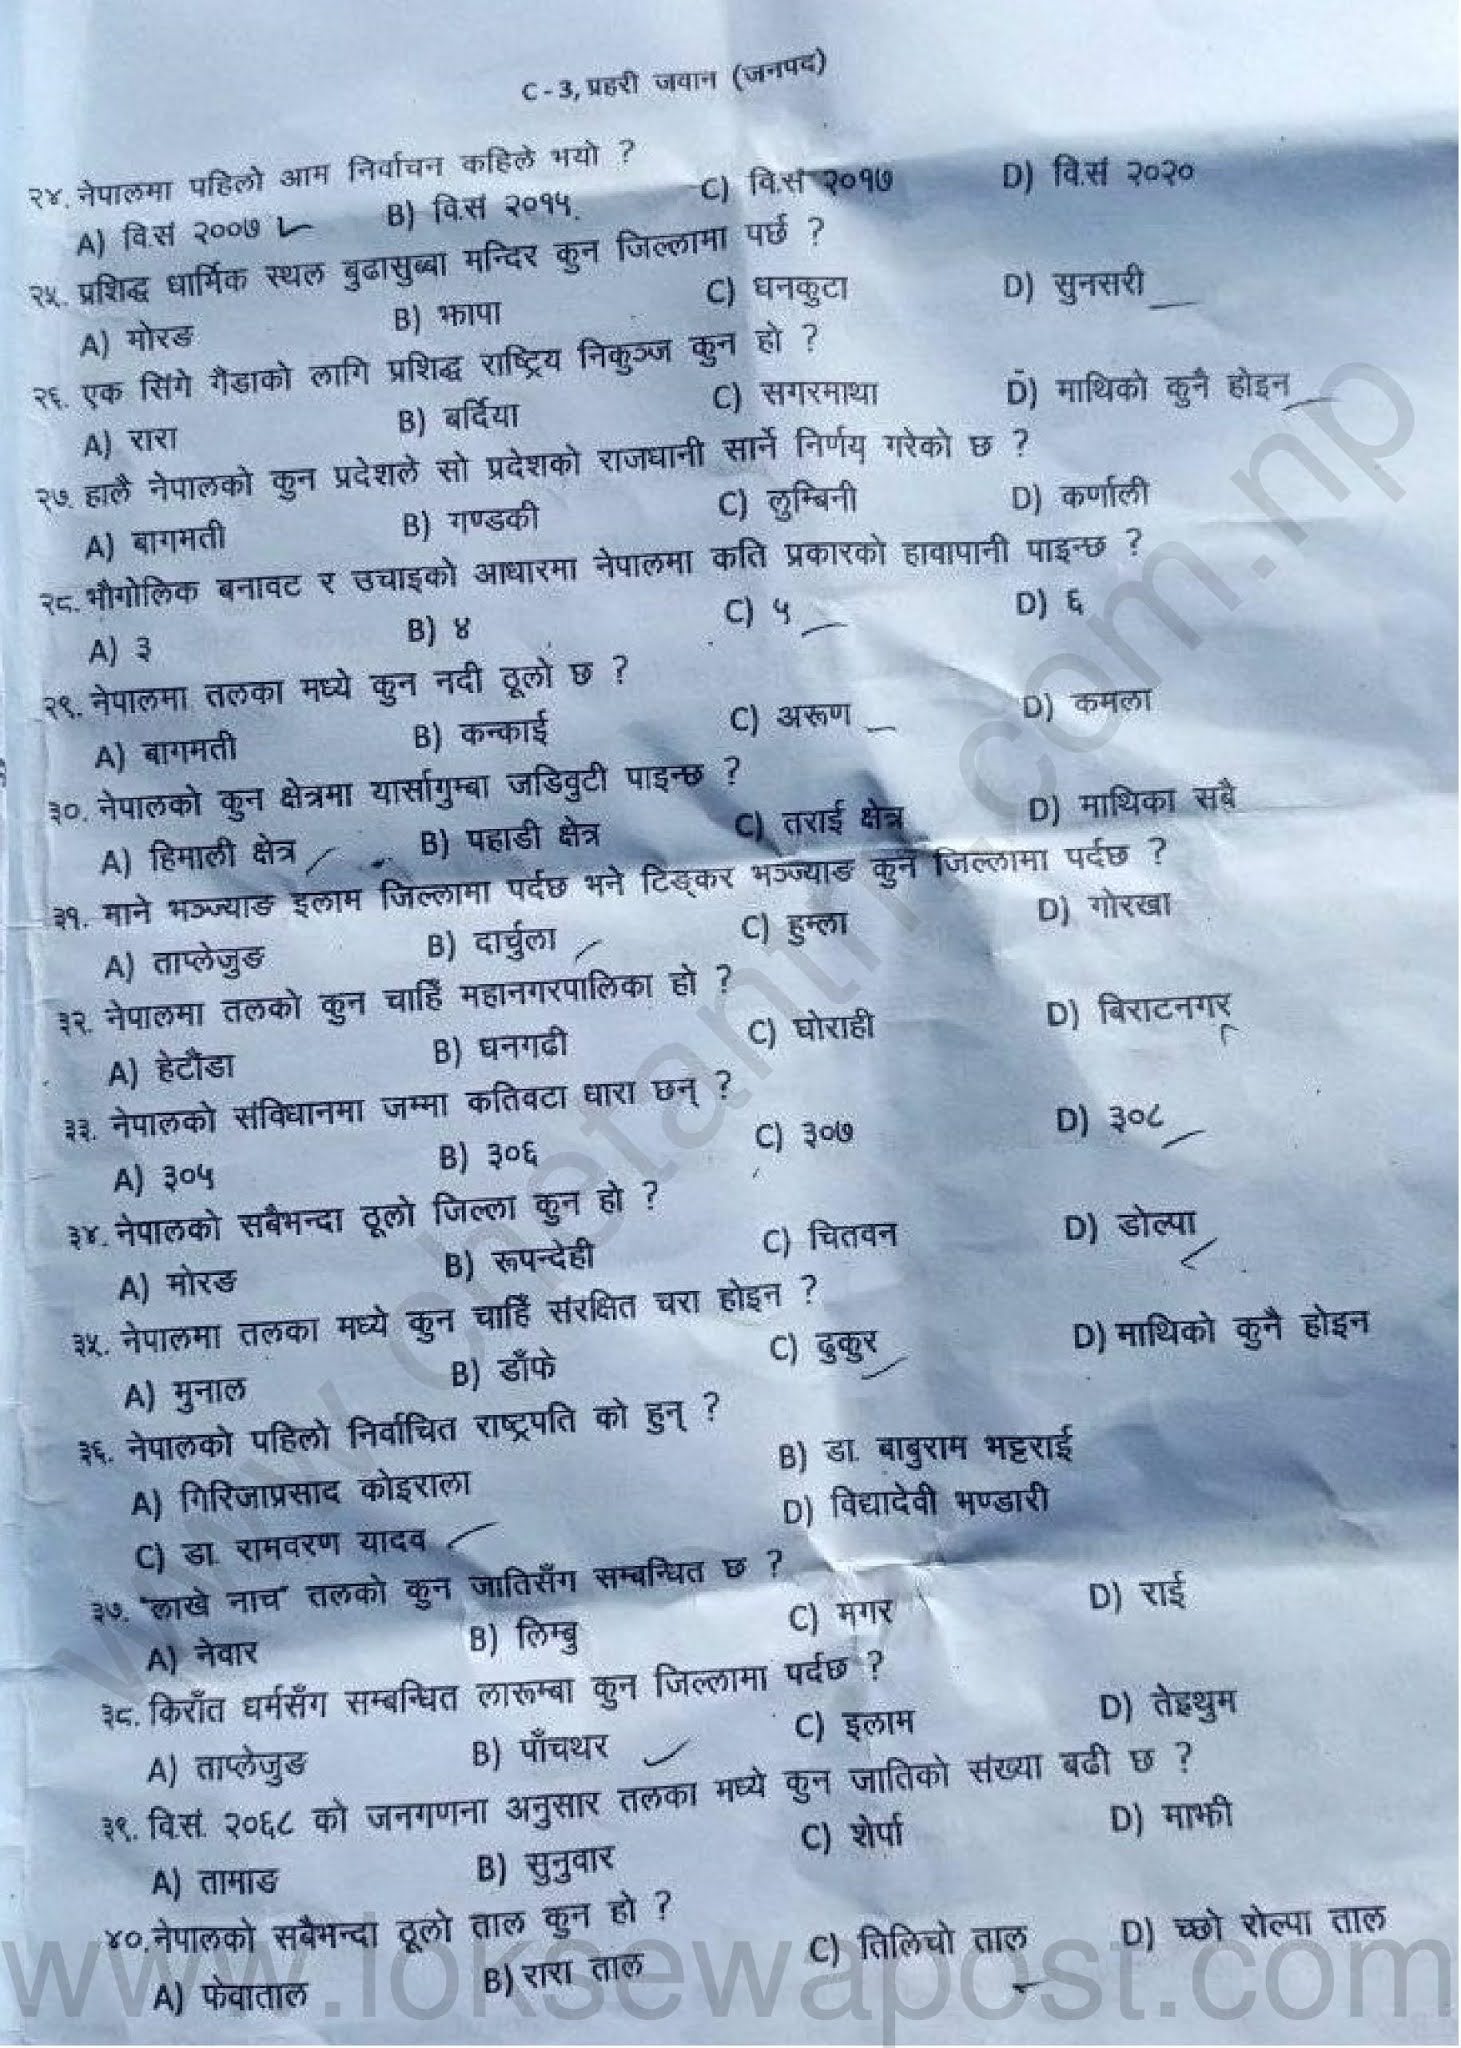 C - 3, प्रहरी जवान (जनपद)
२४. नेपालमा पहिलो आम निर्वाचन कहिले भयो ?
A) वि.सं २००७ B) वि.सं २०१५ C) वि.सं २०१७ D) वि.सं २०२०
२५. प्रशिद्ध धार्मिक स्थल बुढासुब्बा मन्दिर कुन जिल्लामा पर्छ ?
A) मोरङ B) झापा C) धनकुटा D) सुनसरी
२६. एक सिंगे गैडाको लागि प्रशिद्ध राष्ट्रिय निकुञ्ज कुन हो ?
A) रारा B) बर्दिया C) सगरमाथा D) माथिको कुनै होइन
२७. हालै नेपालको कुन प्रदेशले सो प्रदेशको राजधानी सार्ने निर्णय गरेको छ ?
A) बागमती B) गण्डकी C) लुम्बिनी D) कर्णाली
२८. भौगोलिक बनावट र उचाइको आधारमा नेपालमा कति प्रकारको हावापानी पाइन्छ ?
A) ३ B) ४ C) ५ D) ६
२९. नेपालमा तलका मध्ये कुन नदी ठूलो छ ?
A) बागमती B) कन्काई C) अरूण D) कमला
३०. नेपालको कुन क्षेत्रमा यार्सागुम्बा जडिवुटी पाइन्छ ?
A) हिमाली क्षेत्र B) पहाडी क्षेत्र C) तराई क्षेत्र D) माथिका सबै
३१. माने भञ्ज्याङ इलाम जिल्लामा पर्दछ भने टिङ्कर भञ्ज्याङ कुन जिल्लामा पर्दछ ?
A) ताप्लेजुङ B) दार्चुला C) हुम्ला D) गोरखा
३२. नेपालमा तलको कुन चाहिँ महानगरपालिका हो ?
A) हेटौंडा B) धनगढी C) घोराही D) बिराटनगर
३३. नेपालको संविधानमा जम्मा कतिवटा धारा छन् ?
A) ३०५ B) ३०६ C) ३०७ D) ३०८
३४. नेपालको सबैभन्दा ठूलो जिल्ला कुन हो ?
A) मोरङ B) रूपन्देही C) चितवन D) डोल्पा
३५. नेपालमा तलका मध्ये कुन चाहिँ संरक्षित चरा होइन ?
A) मुनाल B) डाँफे C) ढुकुर D) माथिको कुनै होइन
३६. नेपालको पहिलो निर्वाचित राष्ट्रपति को हुन् ?
A) गिरिजाप्रसाद कोइराला B) डा. बाबुराम भट्टराई
C) डा. रामवरण यादव D) विद्यादेवी भण्डारी
३७. "लाखे नाच" तलको कुन जातिसँग सम्बन्धित छ ?
A) नेवार B) लिम्बु C) मगर D) राई
३८. किराँत धर्मसँग सम्बन्धित लारूम्बा कुन जिल्लामा पर्दछ ?
A) ताप्लेजुङ B) पाँचथर C) इलाम D) तेह्रथुम
३९. वि.सं. २०६८ को जनगणना अनुसार तलका मध्ये कुन जातिको संख्या बढी छ ?
A) तामाङ B) सुनुवार C) शेर्पा D) माझी
४०. नेपालको सबैभन्दा ठूलो ताल कुन हो ?
A) फेवाताल B) रारा ताल C) तिलिचो ताल D) च्छो रोल्पा ताल
www.loksewapost.com